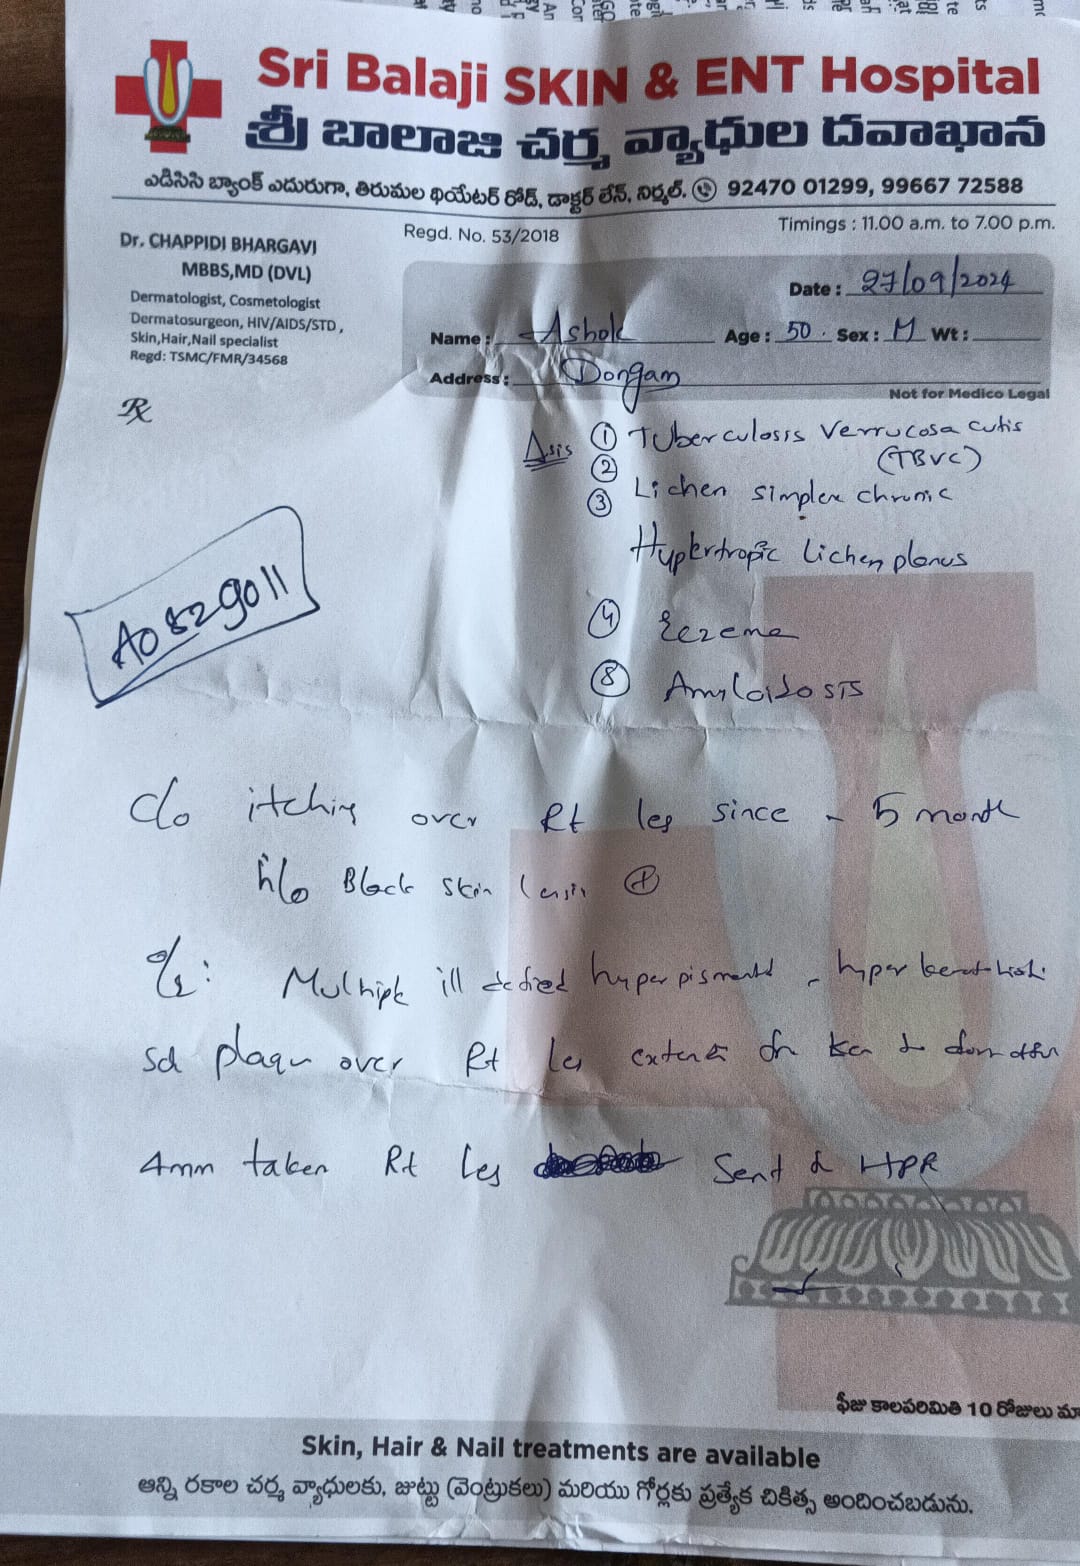 Sri Balaji SKIN & ENT Hospital
శ్రీ బాలాజి చర్మ వ్యాధుల దవాఖాన
ఎడిసిసి బ్యాంక్ ఎదురుగా, తిరుమల థియేటర్ రోడ్, డాక్టర్ లేన్, నిర్మల్. 92470 01299, 99667 72588
Regd. No. 53/2018
Timings : 11.00 a.m. to 7.00 p.m.
Dr. CHAPPIDI BHARGAVI
MBBS,MD (DVL)
Dermatologist, Cosmetologist
Dermatosurgeon, HIV/AIDS/STD,
Skin,Hair,Nail specialist
Regd: TSMC/FMR/34568
Date : 27/09/2024
Name : Ashok Age : 50 Sex : M Wt :
Address : Dongam
Not for Medico Legal
℞
① Tuberculosis Verrucosa cutis
(TBVC)
②
③ Lichen simplex chronic
Hypertropic lichen planus
④ Eczema
⑧ Amyloidosis
A0829011
C/o itching over Rt leg since - 5 month
h/o Black skin lesin ⊕
O/E: Multiple ill defied hyperpigmentd - hyper
plaqu over Rt leg
4mm taken Rt leg Sent HPR
ఫీజు కాలపరిమితి 10 రోజులు మా
Skin, Hair & Nail treatments are available
అన్ని రకాల చర్మ వ్యాధులకు, జుట్టు (వెంట్రుకలు) మరియు గోర్లకు ప్రత్యేక చికిత్స అందించబడును.